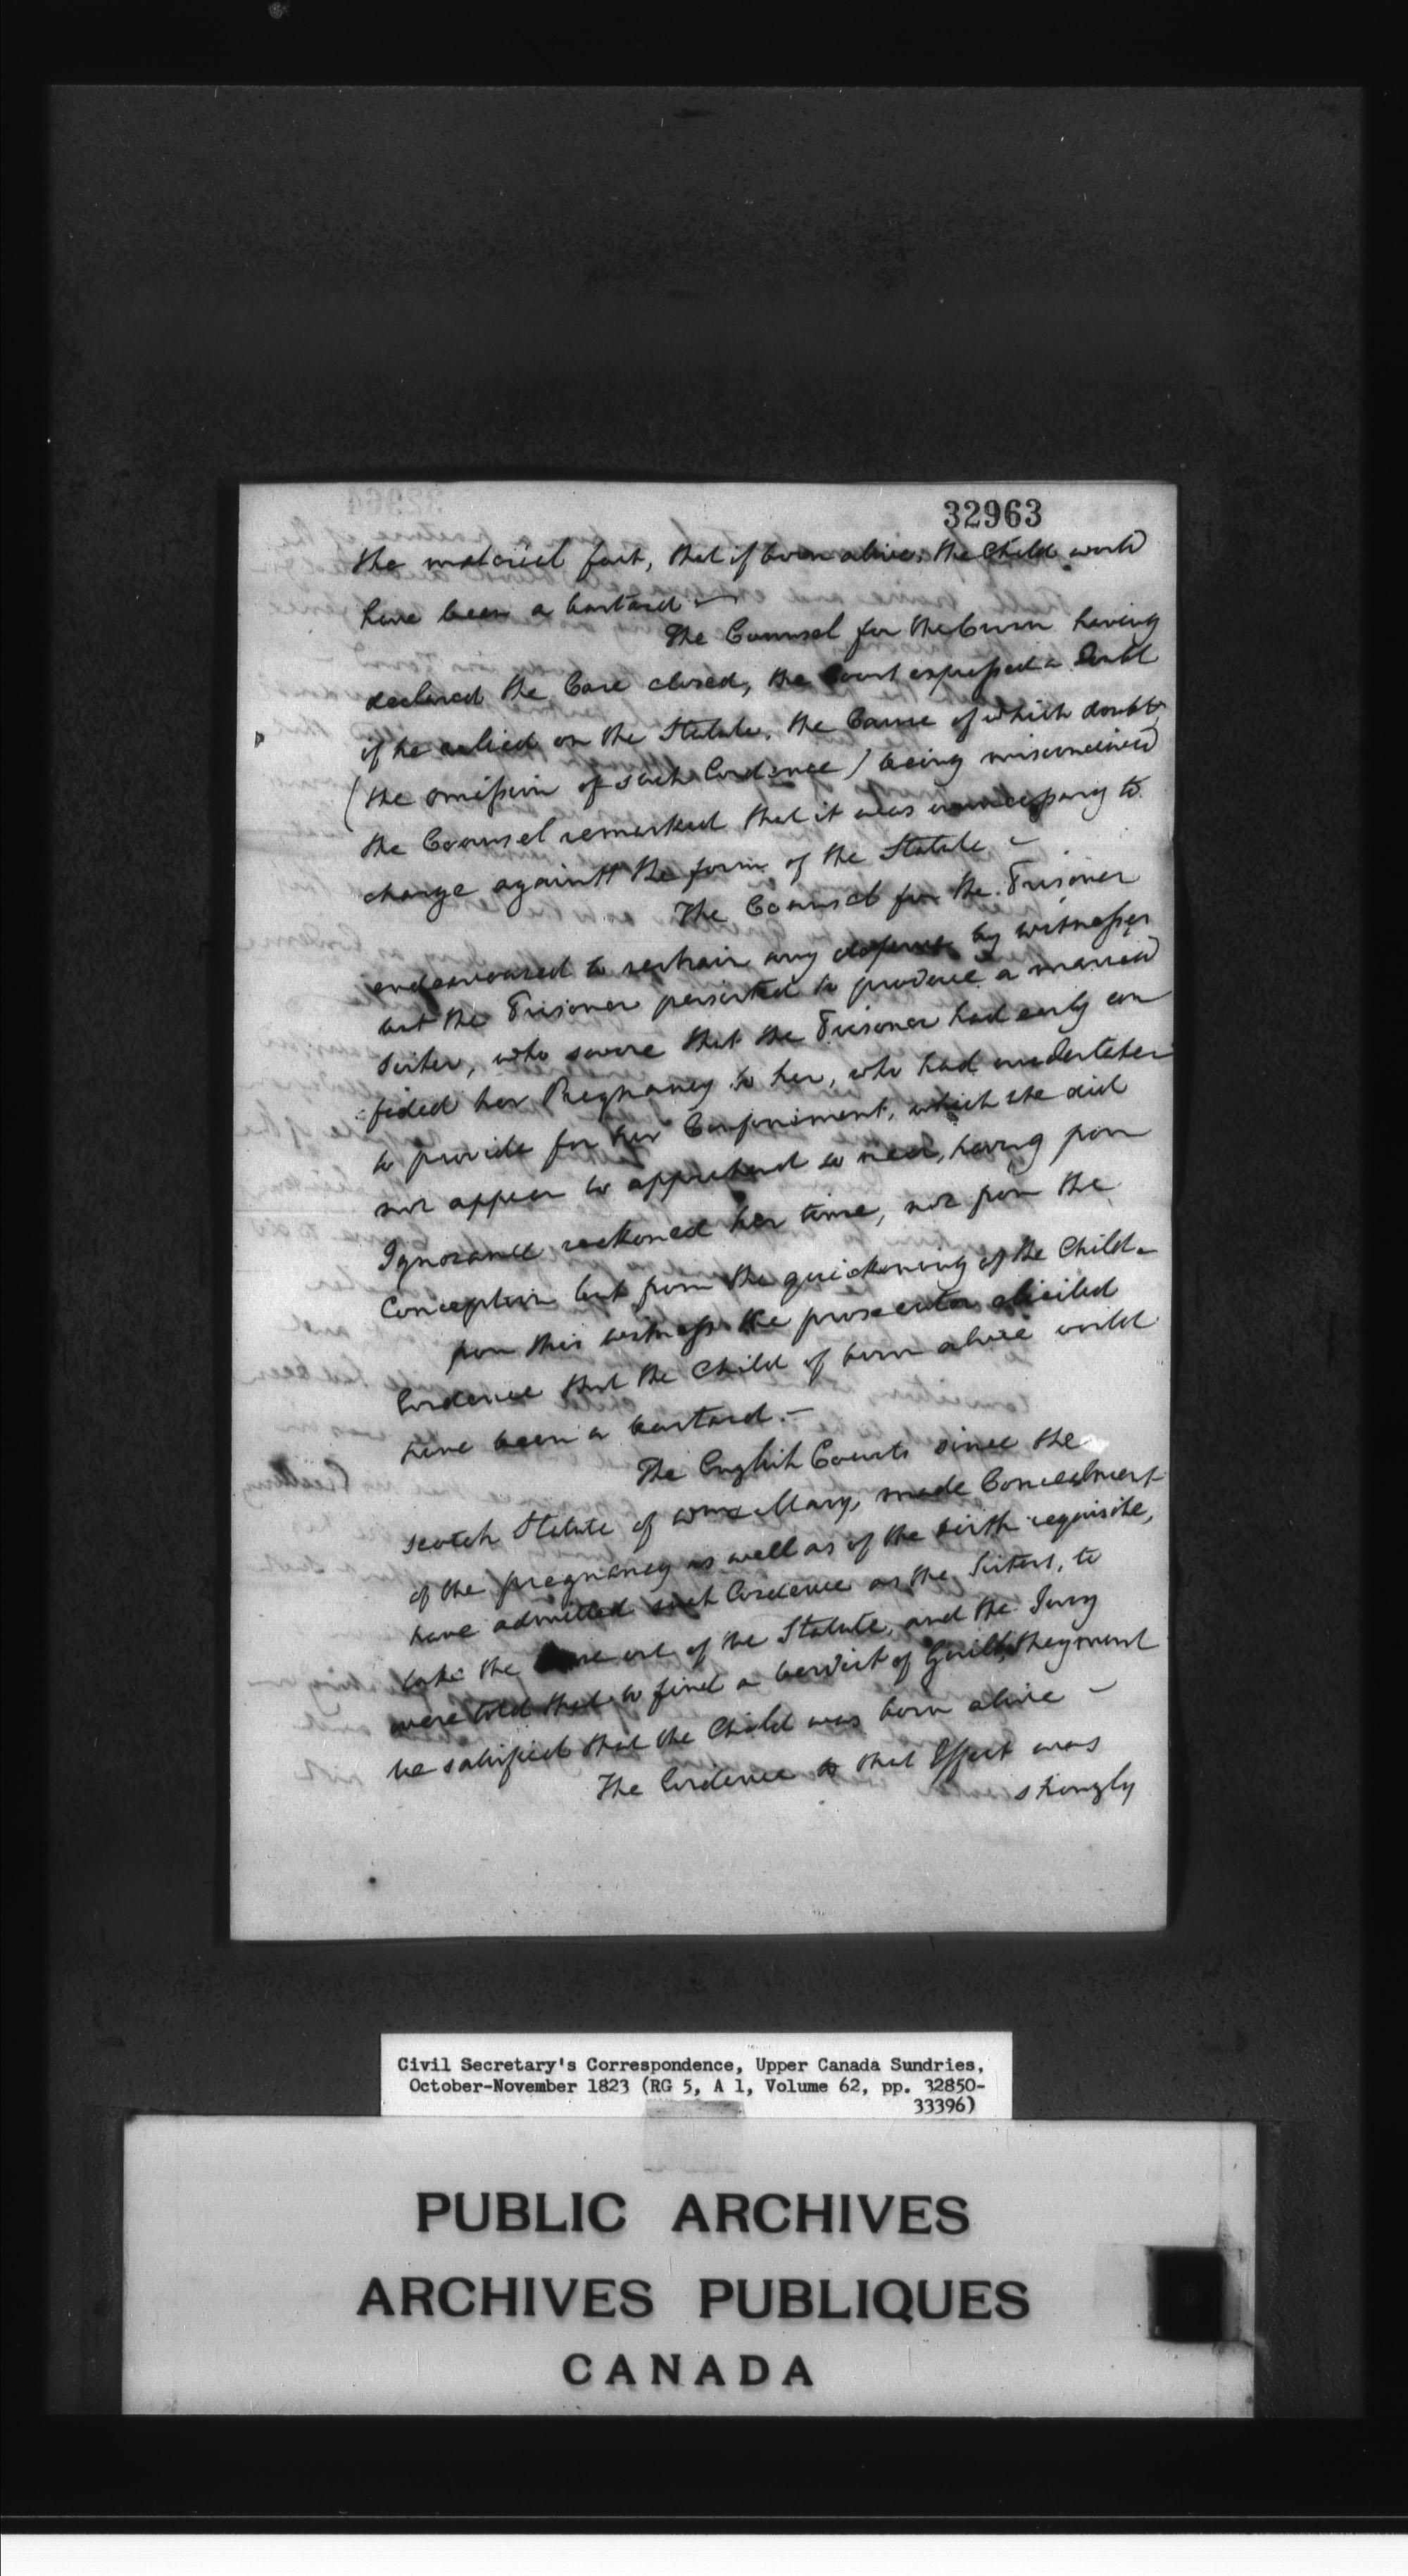 32963
the material fact, that if born alive, the Child would
have been a bastard —
The Counsel for the Crown having
declared the Case closed, the Court expressed a Doubt
if he relied on the Statute, the Cause of which doubt
(the omission of such Evidence) being misconceived
the Counsel remarked that it was unnecessary to
charge against the form of the Statute —
The Counsel for the Prisoner
endeavoured to restrain any defence by witnesses
but the Prisoner persisted to produce a married
sister, who swore that the Prisoner had early con
=fided her Pregnancy to her, who had undertaken
to provide for her Confinement, which she did
not appear to apprehend so near, having from
Ignorance reckoned her time, not from the
Conception but from the quickening of the Child—
from this witness the prosecutor elicited
Evidence that the Child if born alive would
have been a bastard. —
The English Courts since the
scotch Statute of Wm & Mary, made Concealment
of the pregnancy as well as of the birth requisite,
have admitted such Evidence as the Sisters, to
take the Case out of the Statute, and the Jury
were told that to find a verdict of Guilt, they must
be satisfied that the Child was born alive —
The Evidence to that Effect was
strongly
Civil Secretary's Correspondence, Upper Canada Sundries,
October-November 1823 (RG 5, A 1, Volume 62, pp. 32850-
33396)
PUBLIC ARCHIVES
ARCHIVES PUBLIQUES
CANADA